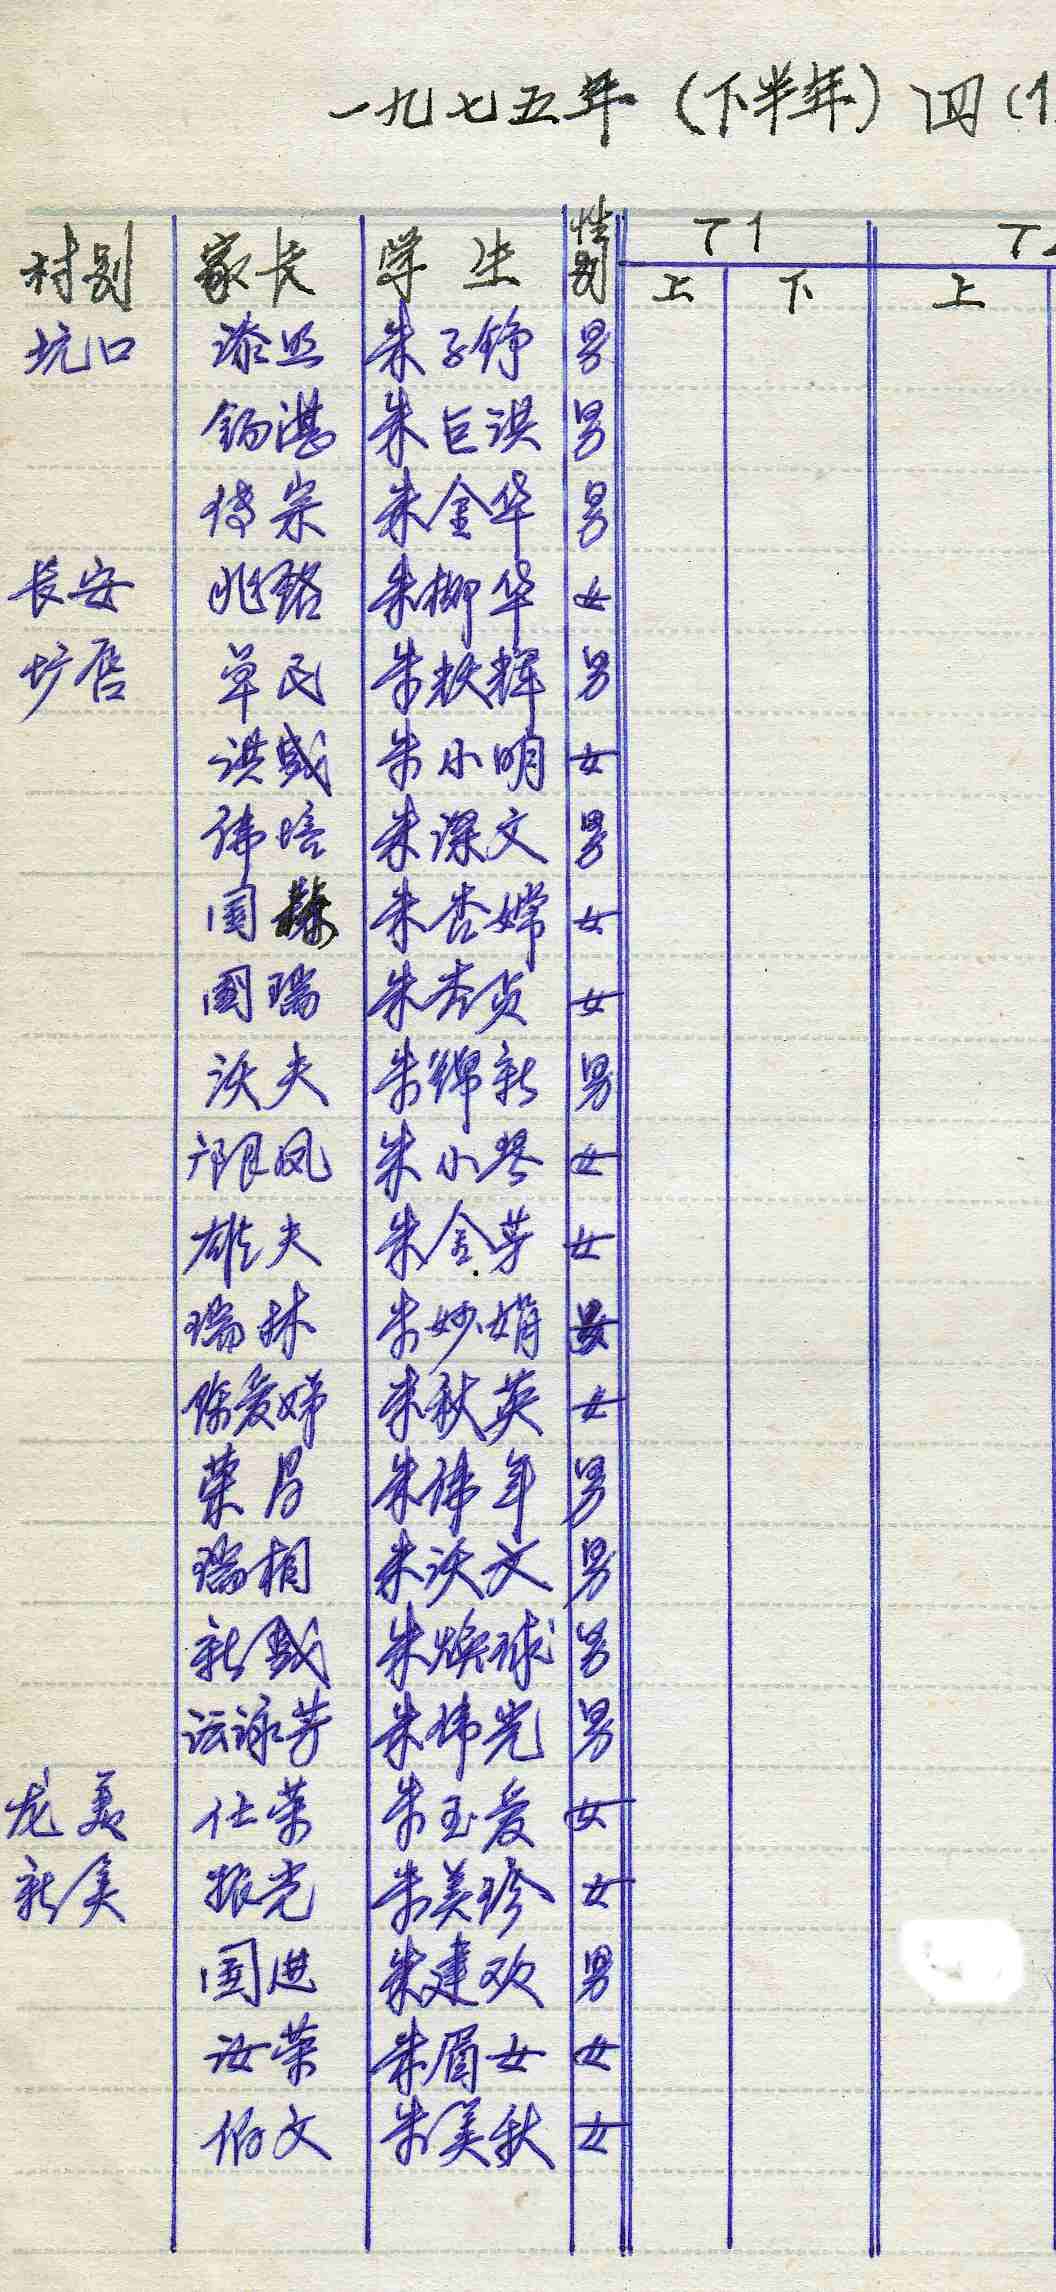 一九七五年（下半年）四(1
村别 家长 学生 性别 T1 T
上 下 上
坑口 添照 朱子铮 男
锡湛 朱巨洪 男
传宗 朱金华 男
长安 兆铭 朱柳华 女
圹唇 单民 朱耿辉 男
洪盛 朱小明 女
伟培 朱深文 男
国 朱杏嫦 女
国瑞 朱杏贞 女
沃夫 朱锦新 男
凤 朱小琴 女
雄夫 朱金芳 女
瑞林 朱妙娟
陈爱娣 朱秋英 女
荣昌 朱伟年 男
瑞相 朱沃文 男
新盛 朱焕球 男
沄咏芳 朱炜光 男
龙美 仕荣 朱玉爱 女
新美 振光 朱美珍 女
国进 朱建欢 男
汝荣 朱眉女 女
伯文 朱美秋 女